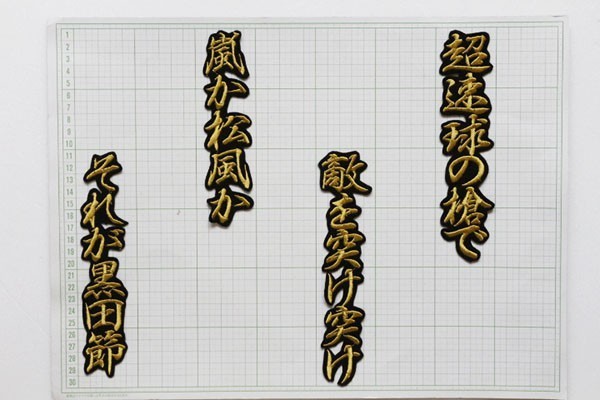 超速球の槍で
敵を突け突け
嵐か松風か
それが黒田節
1
2
3
4
5
6
7
8
9
10
11
12
13
14
15
16
17
18
19
20
21
22
23
24
25
26
27
28
29
30